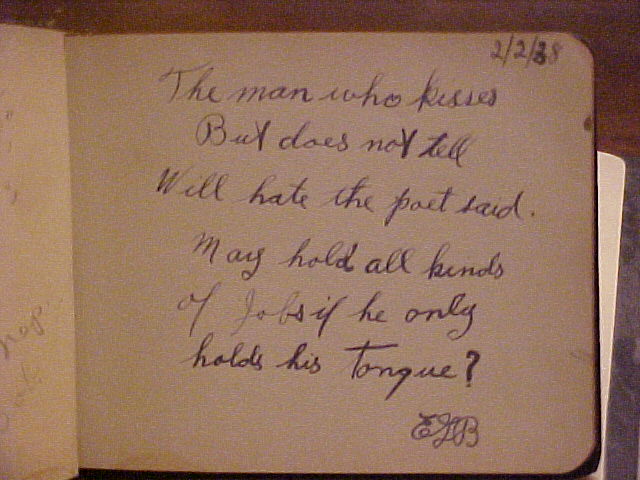 2/2/38
The man who kisses
But does not tell
Will hate the poet said.
May hold all kinds
of Jobs if he only
holds his Tongue?
EGB